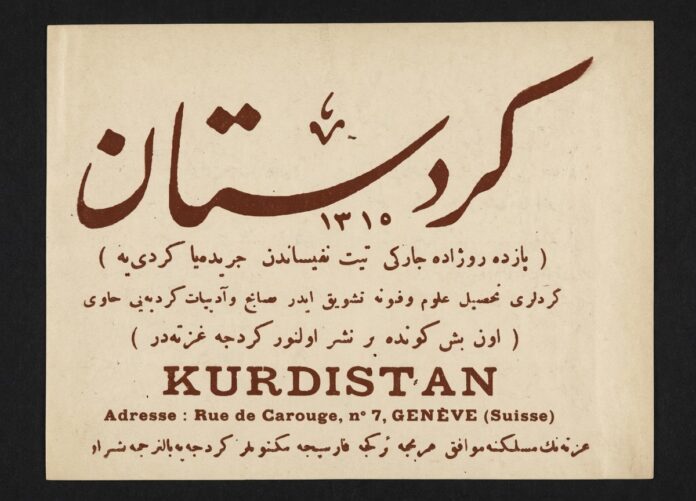 كردستان
١٣١٥
( پازده روژاده جاركى تيت نفيساندن جريده‌يا كردى‌يه )
كردلرى تحصيل علوم وفنونه تشويق ايدر نصايح وآدبيات كرديه‌يى حاوى
( اون بش كونده بر نشر اولنور كردجه غزته‌در )
KURDISTAN
Adresse : Rue de Carouge, nº 7, GENÈVE (Suisse)
غزته‌نك مسلكنه موافق عربجه تركجه فارسيجه مكتوبلر كردجه‌يه بالترجمه نشر اولنور